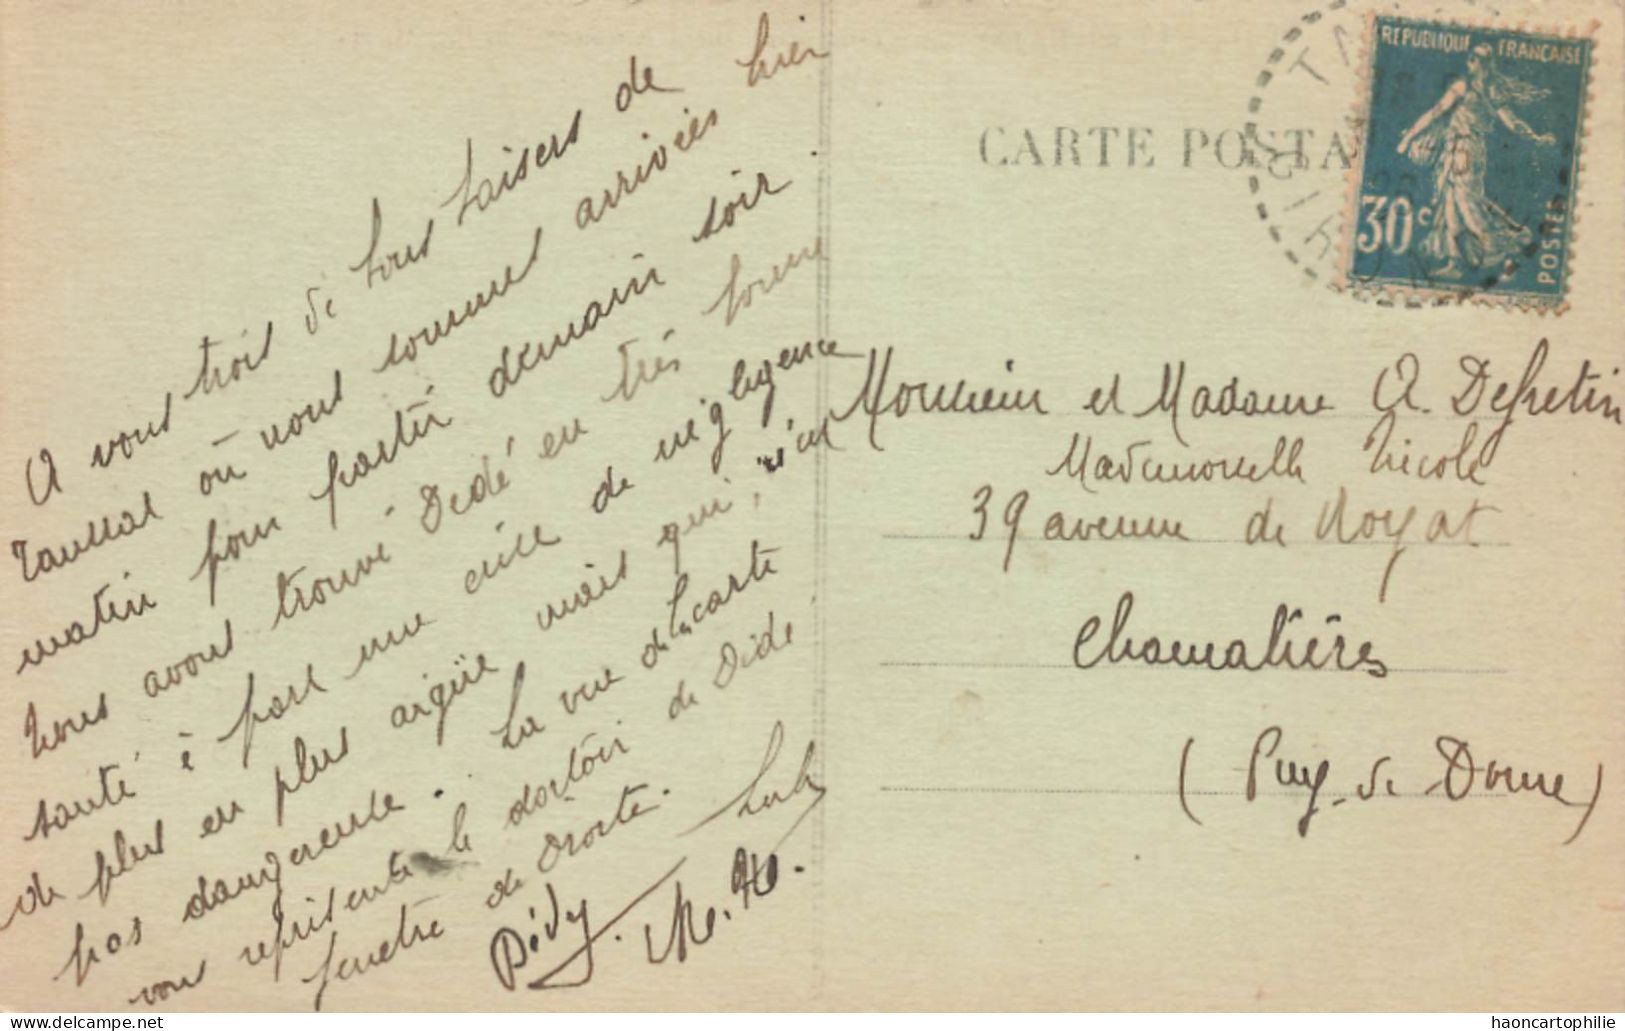 A vous trois de tous baisers de
Taussat où nous sommes arrivées hier
matin pour partir demain soir.
Nous avons trouvé Dédé en très bonne
santé à part une crise de négligence
de plus en plus aigüe mais qui, n'est
pas dangereuse. La vue de la carte
vous représente le dortoir de Dédé.
fenêtre de droite.
Dédy
M. H.
CARTE POSTA
REPUBLIQUE FRANCAISE
30c
POSTES
TA
GIRONDE
Monsieur et Madame A. Defretin
Mademoiselle Nicole
39 avenue de Royat
Chamalières
(Puy-de Dome)
haoncartophilie